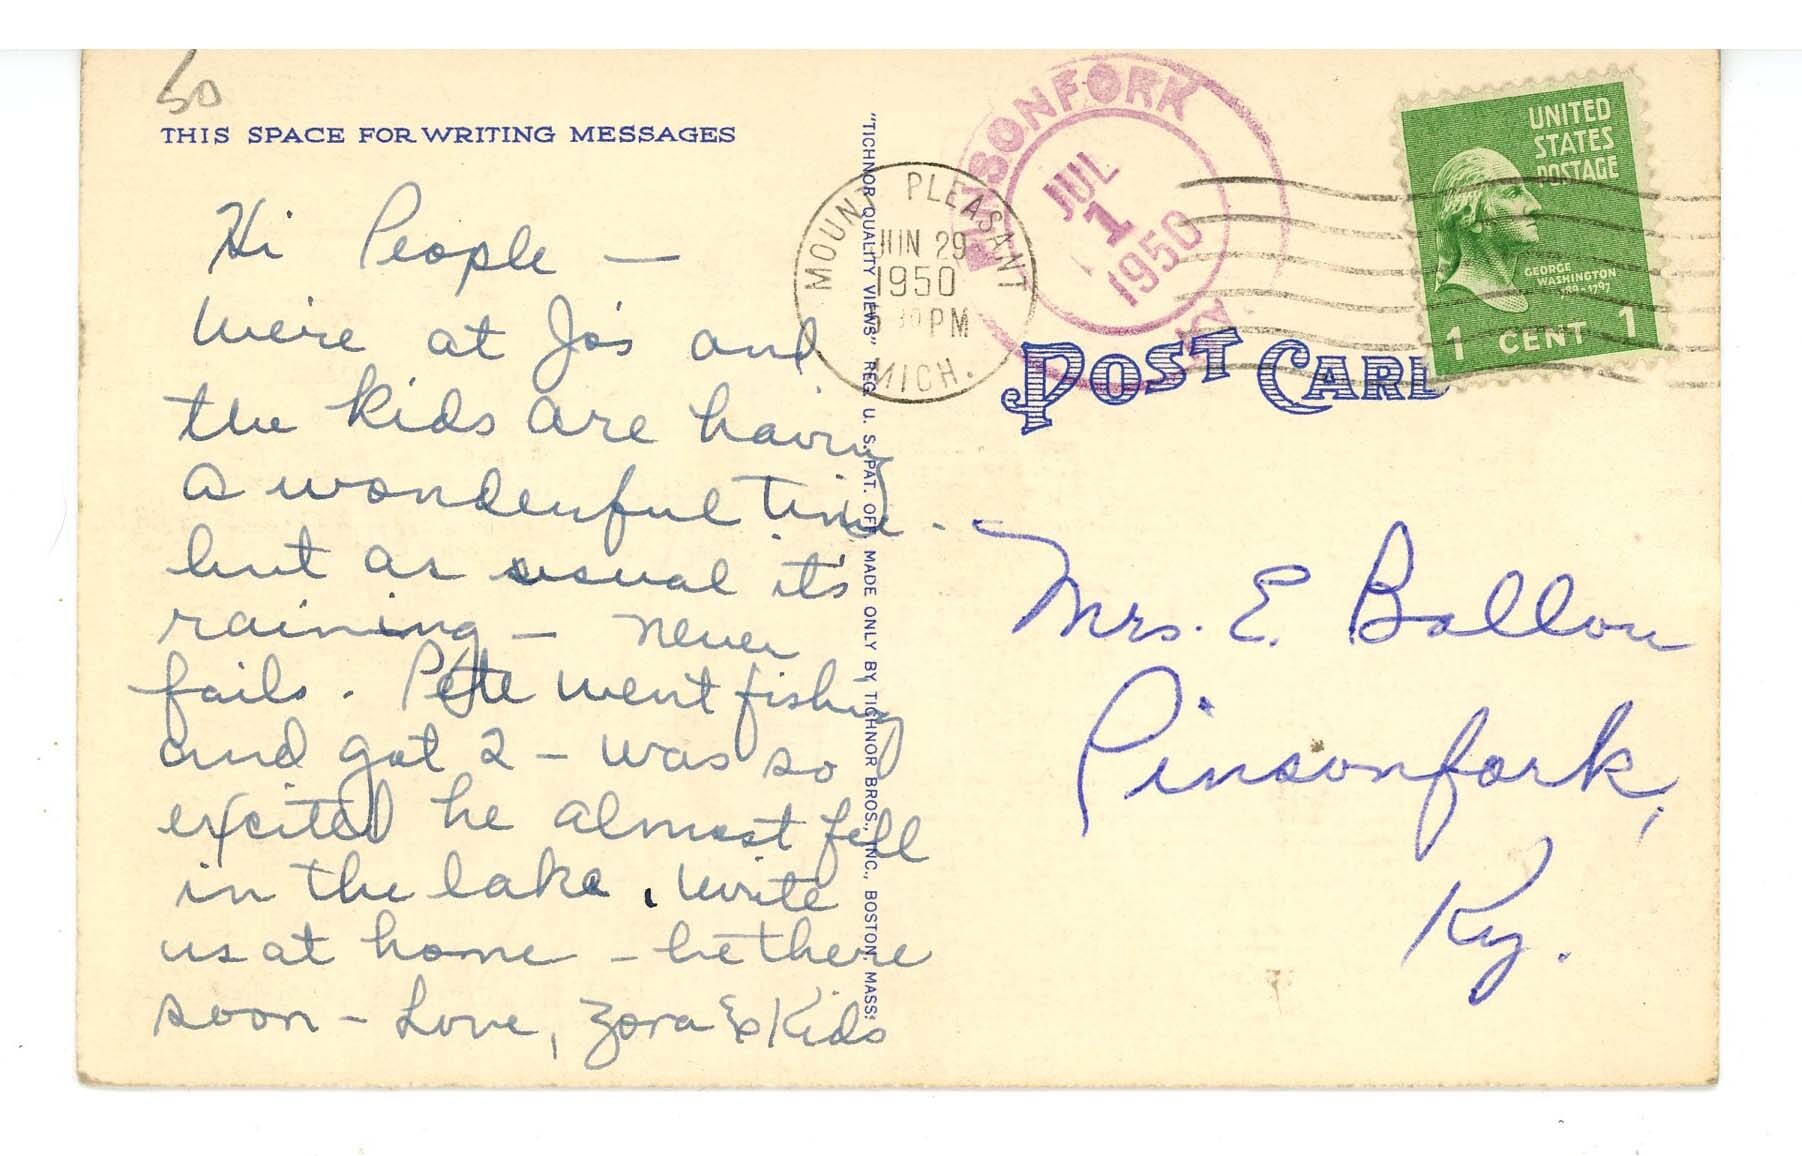 50
THIS SPACE FOR WRITING MESSAGES
Hi People —
We're at Jo's and
the kids are having
a wonderful time -
but as usual it's
raining — never
fails. Pete went fishing
and got 2 — was so
excited he almost fell
in the lake. Write
us at home — be there
soon — Love, Zora & Kids
"TICHNOR QUALITY VIEWS" REG. U. S. PAT. OFF. MADE ONLY BY TICHNOR BROS., INC., BOSTON, MASS.
MOUNT PLEASANT
JUN 29
1950
PM
MICH.
PINSONFORK
JUL
1
1950
UNITED
STATES
POSTAGE
GEORGE
WASHINGTON
1789-1797
1 CENT 1
POST CARD
Mrs. E. Ballou
Pinsonfork,
Ky.